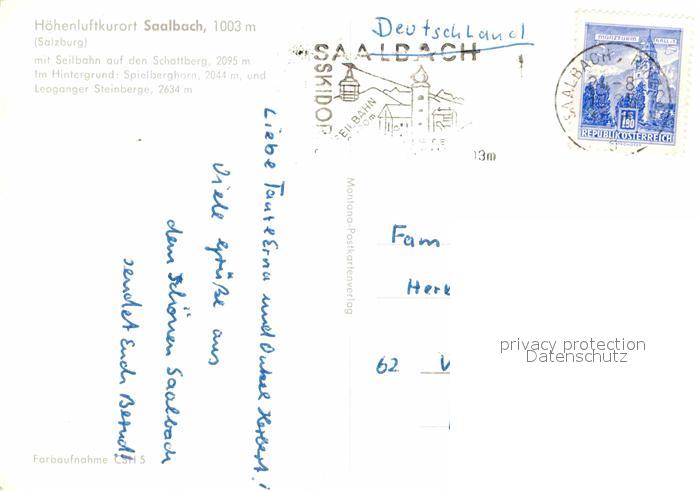 Höhenluftkurort Saalbach, 1003 m
(Salzburg)
mit Seilbahn auf den Schattberg, 2095 m
Im Hintergrund: Spielberghorn, 2044 m, und
Leoganger Steinberge, 2634 m
Deutschland
SAALBACH
SKIDOR
SEILBAHN
03m
SAALBACH
MÜNZTURM
HALL i. T.
S 1.80
REPUBLIK ÖSTERREICH
Liebe Tante Erna und Onkel Herbert!
Viele Grüße aus
dem schönen Saalbach
sendet Euch Berndt
Montana-Postkartenverlag
Fam
Herb
62
privacy protection
Datenschutz
Farbaufnahme CSH 5